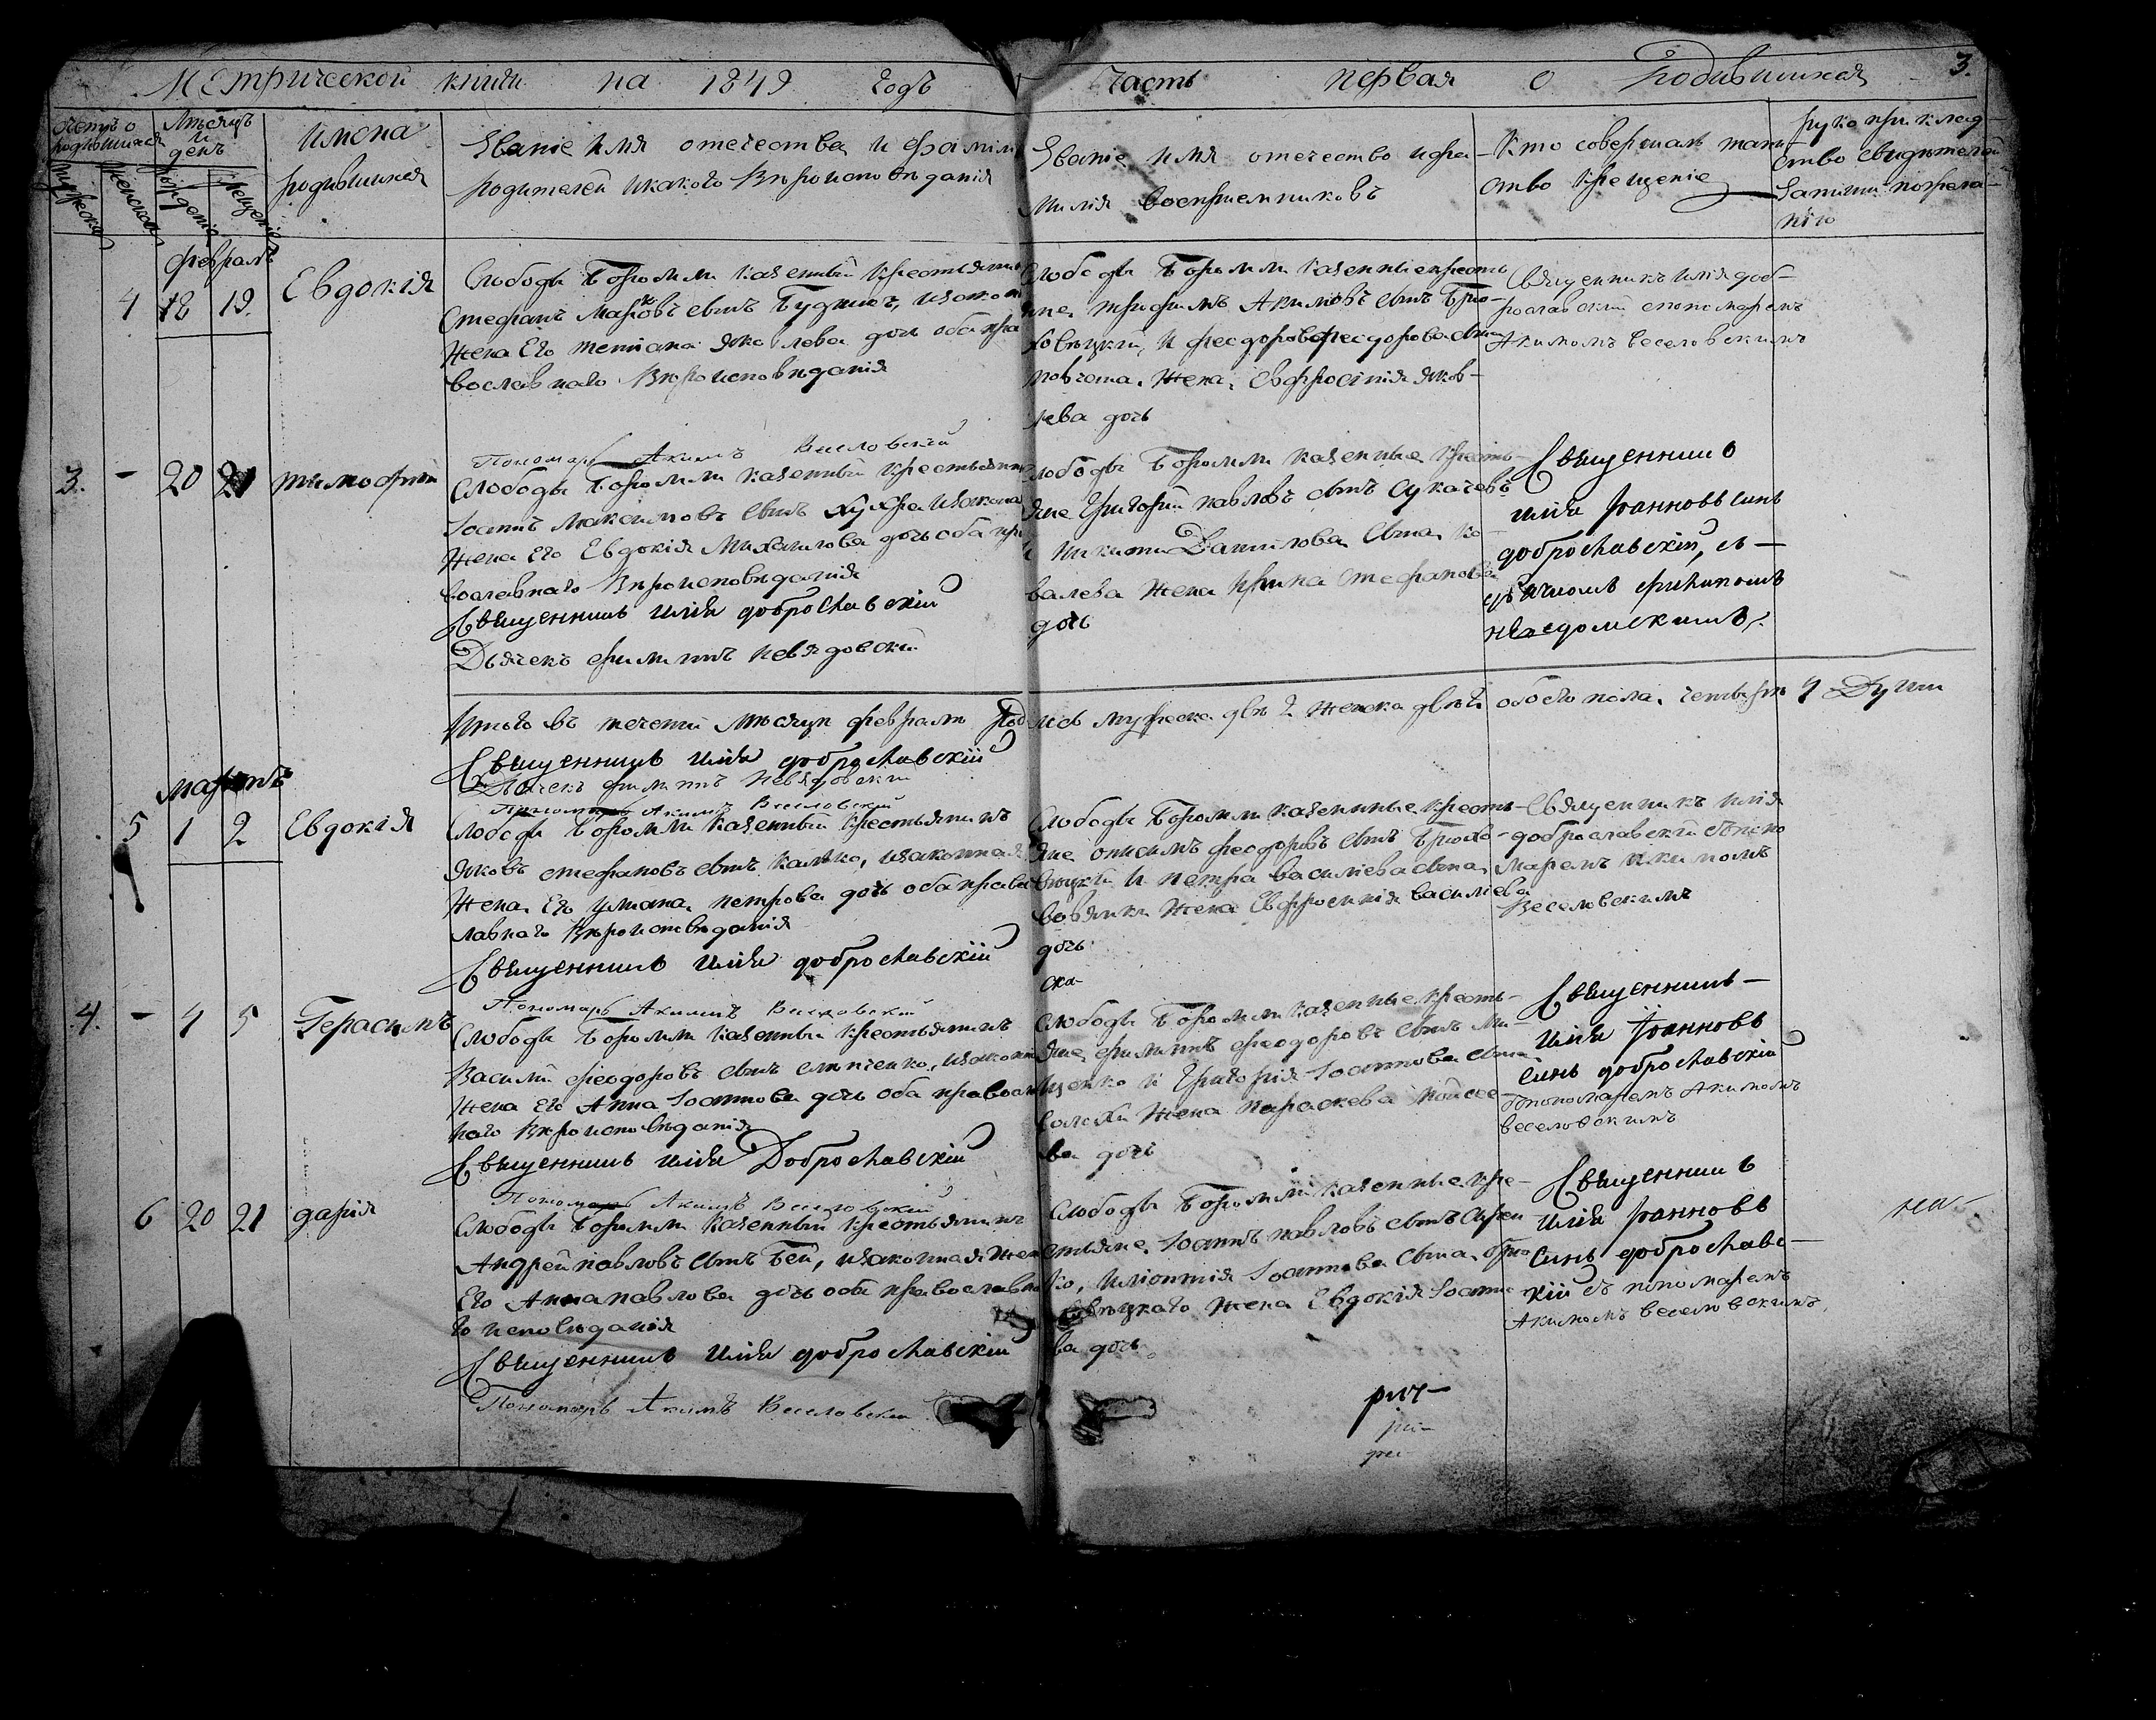 Метрической книги на 1849 годъ часть первая о родившихся 3.
Счетъ о родившихся
Мѣсяцъ и день
Имена родившихся
Званіе имя отечества и фамилія
родителей и какого вѣроисповѣданія
Званіе имя отечество и фа-
милія восприемниковъ
Кто совершалъ таин-
ство крещеніе
рукоприклад-
ство свидетелей
записи по жела-
нію
Мужеска
Женска
рожденія
крещенія
февраль
4 18 19. Евдокія
Слободы Боромли казенный крестьянинъ
Стефанъ Марковъ сынъ законная
Жена Его Татіана Яковлева дочь оба пра
вославнаго Вѣроисповѣданія
Слободы Боромли казенные кресть
яне, Трифонъ Акимовъ сынъ Брю-
ховецкій, и Феодорова сына
жена, Евфросинія Яков-
лева дочь
Священникъ Илія доб-
рославскій с пономаремъ
Акимомъ Веселовскимъ
Пономарь Акимъ Веселовскій
3. - 20 21 Тимофей
Слободы Боромли казенный крестьянинъ
Іоаннъ Максимовъ сынъ законная
Жена Его Евдокія Михайлова дочь оба пра
вославнаго Вѣроисповѣданія
Священникъ Илія доброславскій
Дьячекъ Филиппъ
Слободы Боромли казенные кресть-
яне Григорій Павловъ сынъ Сукачевъ
и Никиты Данилова сына Ко-
валева жена Ирина Стефанова
дочь
Священникъ
Илія Іоанновъ синъ
доброславскій, съ
дьячкомъ Филипомъ
Итого въ теченіи мѣсяца февраля родилось мужеска двѣ 2 женска двѣ 2 обоего пола четыре 4 Души
Священникъ Илія доброславскій
Дьячекъ Филиппъ
Пономарь Акимъ Веселовскій
мартъ
5 1 2 Евдокія
Слободы Боромли казенный крестьянинъ
Яковъ Стефановъ сынъ законная
Жена Его Уліана Петрова дочь оба правос
лавнаго Вѣроисповѣданія
Священникъ Илія доброславскій
Слободы Боромли казенные кресть-
яне Онисимъ Феодоровъ сынъ Брюхо-
вецкій и Петра Василіева сына
жена Евфросинія Василіева
дочь
Священникъ Илія
доброславскій с поно
маремъ Акимомъ
Веселовскимъ
Пономарь Акимъ Веселовскій
4. - 4 5 Герасимъ
Слободы Боромли казенный крестьянинъ
Василій Феодоровъ сынъ законная
Жена Его Анна Іоаннова дочь оба православ
наго Вѣроисповѣданія
Священникъ Илія Доброславскій
Слободы Боромли казенные кресть-
яне, Филиппъ Феодоровъ сынъ Ми-
щенко и Григорія Іоаннова сына
жена Параскева Моисее-
ва дочь
Священникъ
Илія Іоанновъ
синъ доброславскій
с пономаремъ Акимомъ
Веселовскимъ
Пономарь Акимъ Веселовскій
6 20 21 дарія
Слободы Боромли казенный крестьянинъ
Андрей Павловъ сынъ Бей, и законная жена
Его Анна Павлова дочь оба православна
го исповѣданія
Священникъ Илія доброславскій
Пономарь Акимъ Веселовскій
Слободы Боромли казенные кре-
стьяне, Іоаннъ Павловъ сынъ
ко, и Леонтія Іоаннова сына Брю
ховецкаго жена Евдокія Іоанно
ва дочь
Священникъ
Илія Іоанновъ
синъ доброславс-
кій съ пономаремъ
Акимомъ Веселовскимъ